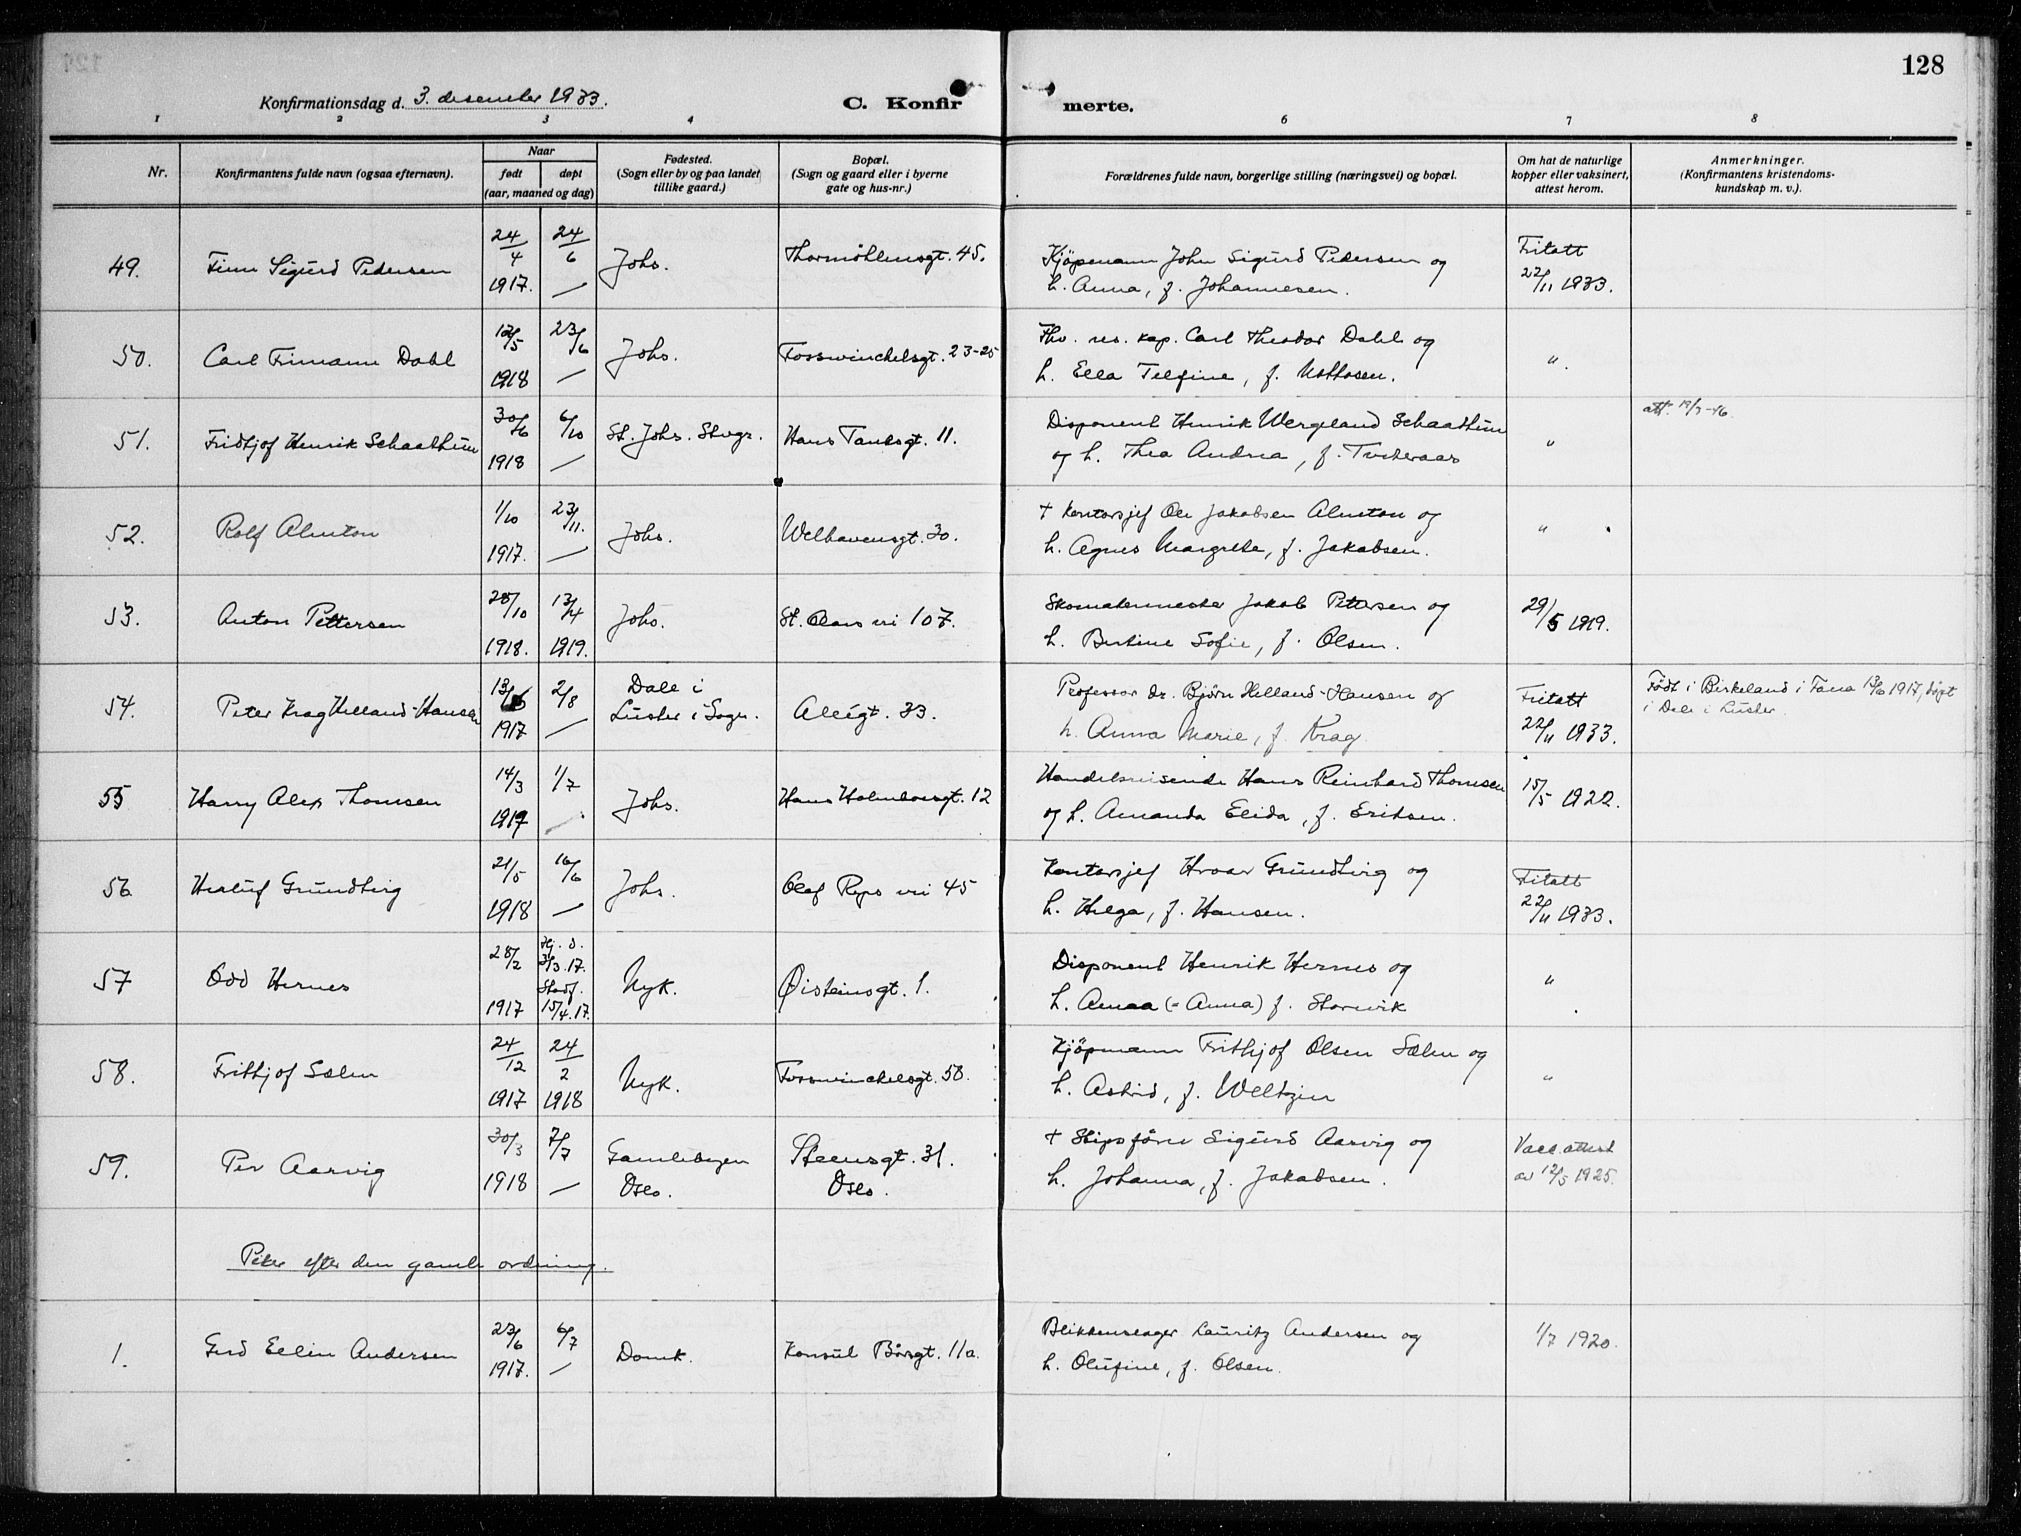 128
Konfirmationsdag d. 3. desember 1933.
C. Konfirmerte.
1 2 3 4 6 7 8
Nr.
Konfirmantens fulde navn (ogsaa efternavn).
Naar
født
døpt
(aar, maaned og dag)
Fødested.
(Sogn eller by og paa landet
tillike gaard.)
Bopæl.
(Sogn og gaard eller i byerne
gate og hus-nr.)
Forældrenes fulde navn, borgerlige stilling (næringsvei) og bopæl.
Om hat de naturlige
kopper eller vaksinert,
attest herom.
Anmerkninger.
(Konfirmantens kristendoms-
kundskap m. v.).
49. Finn Sigurd Pedersen 24/4 1917. 24/6 — Johs. Thormøhlensgt. 45.
Kjöpmann John Sigurd Pedersen og
h. Anna, f. Johannesen.
Fritatt
22/11 1933.
50. Carl Frimann Dahl 12/5 1918 23/6 — Johs. Fosswinckelsgt. 23-25
Fhv. res. kap. Carl Theodor Dahl og
h. Ella Telfine, f. Mothosen.
"
51. Fridhjof Henrik Schaathun 30/6 1918 6/10 — St. Johs. Stvgr. Hans Tanksgt. 11.
Disponent Henrik Wergeland Schaathun
og h. Thea Andrea, f. Tveteraas
"
att. 19/9-46.
52. Rolf Almton 1/10 1917. 23/11. — Johs. Welhavensgt. 30.
+ Kontorsjef Ole Jakobsen Almton og
h. Agnes Margrethe, f. Jakobsen.
"
53. Anton Pettersen 28/10 1918. 13/4 1919. Johs. St. Olavs vei 107.
Skomakermester Jakob Pettersen og
h. Bertine Sofie, f. Olsen.
29/5 1919.
54. Peter Krag Helland-Hansen 13/6 1917 2/8 — Dale i
Luster i Sogn. Allégt. 33.
Professor dr. Bjørn Helland-Hansen og
h. Anna Marie, f. Krag.
Fritatt
22/11 1933.
Født i Birkeland i Fana 13/6 1917, døpt
i Dale i Luster.
55 Harry Alex Thomsen 14/3 1919 1/7 — Johs. Hans Holmboesgt. 12
Handelsreisende Hans Reinhard Thomsen
og h. Amanda Elida, f. Eriksen.
15/5 1922.
56 Herluf Grundtvig 21/5 1918 16/6 — Johs. Olaf Ryes vei 45
Kontorsjef Hroar Grundtvig og
h. Helga, f. Hansen.
Fritatt
22/11 1933.
57 Odd Hernes 28/2 1917 Hj. d. 31/3. 17. Stadf. 15/4. 17. Nyk. Øisteinsgt. 1.
Disponent Henrik Hernes og
h. Amaa (= Anna) f. Storvik
"
58. Frithjof Sælen 24/12 1917 24/2 1918 Nyk. Fosswinckelsgt. 58.
Kjöpmann Frithjof Olsen Sælen og
h. Astrid, f. Weltzin
"
59. Per Aarvig 30/3 1918 7/7 — Gamlebyen
Oslo. Steensgt. 31.
Oslo.
+ Skipsfører Sigurd Aarvig og
h. Johanna, f. Jakobsen.
Vacc. attest
av 12/5 1925.
Piker efter den gamle ordning.
1. Gerd Ellin Andersen 23/6 1917. 6/7 — Domk. Konsul Børsgt. 11a.
Blikkenslager Lauritz Andersen og
h. Olufine, f. Olsen.
1/7 1920.